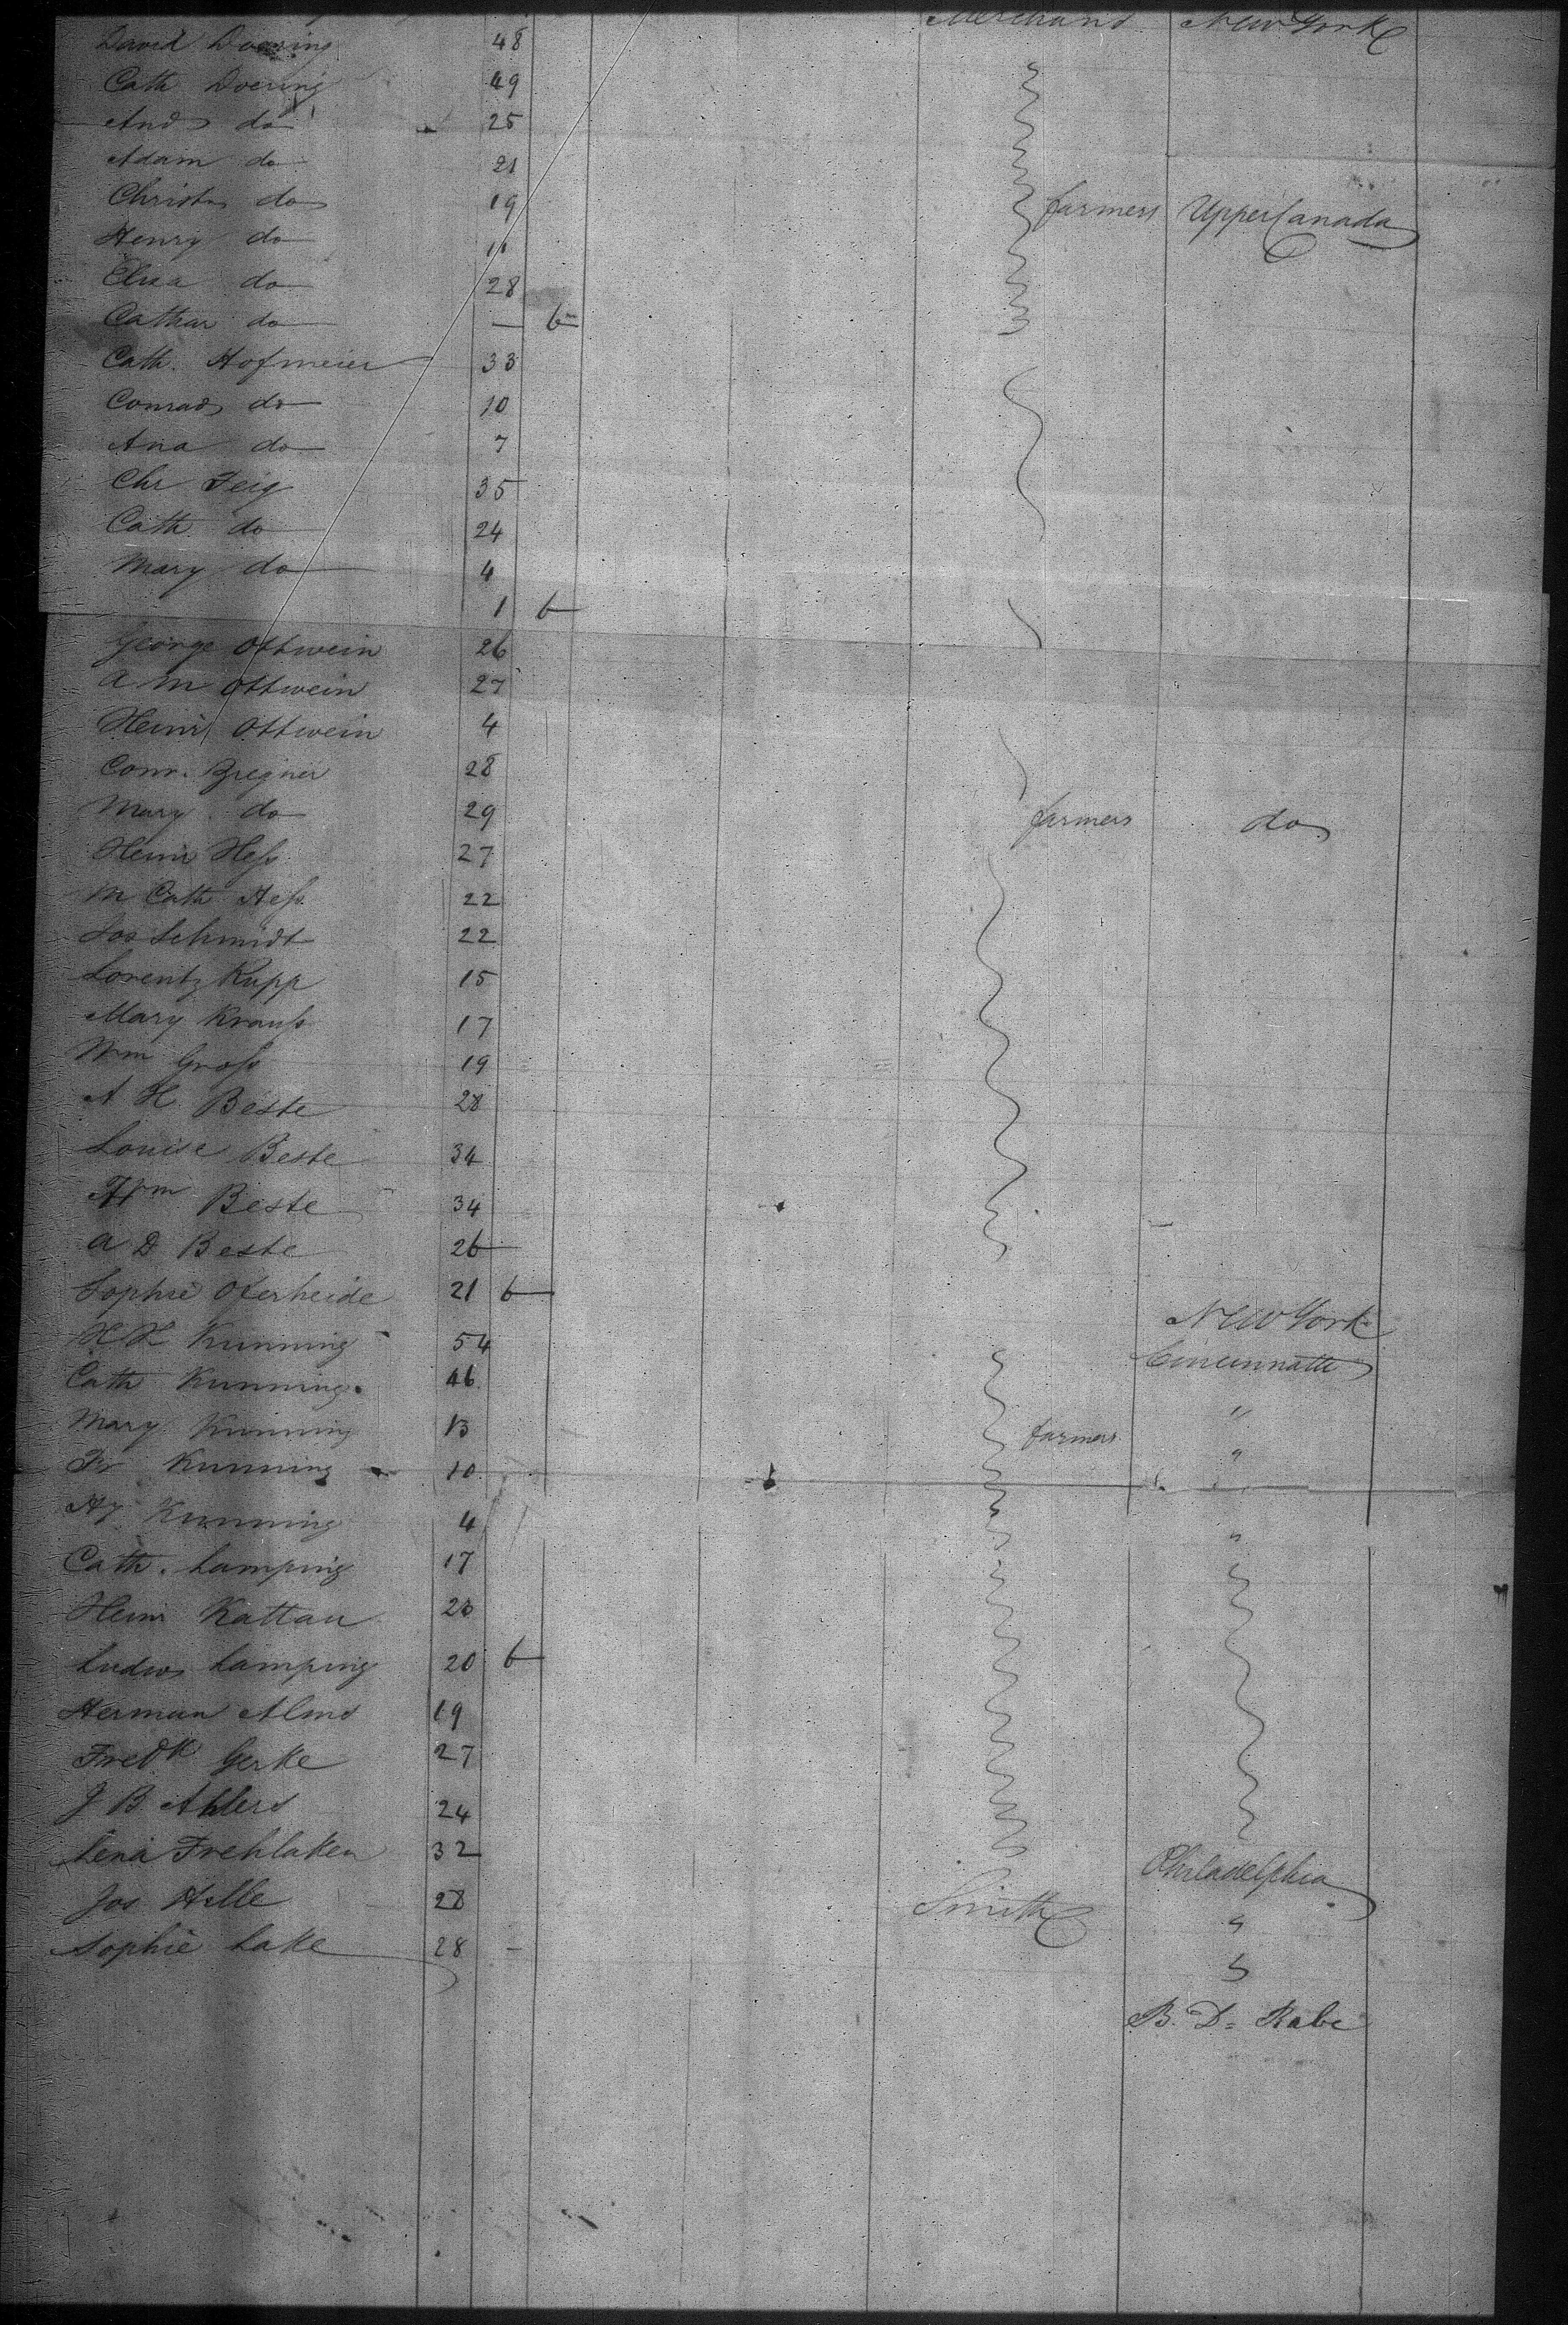 Merchand New York
David Doering 48
Cath Doering 49
And do 25
Adam do 21
Christn do 19 farmers Upper Canada
Henry do 11
Elisa do 28
Cathar do — 6
Cath. Hofmeier 33
Conrad do 10
Ana do 7
Chr Feig 35
Cath. do 24
Mary do 4
1 6
George Ottwein 26
A M Ottwein 27
Heinr Ottwein 4
Conr. 28
Mary do 29 farmers do
Heinr Heß 27
M Cath Heß 22
Jos Schmidt 22
Lorentz Rupp 15
Mary Krauß 17
Wm Groß 19
A H. Beste 28
Louise Beste 34
Beste 34
A D Beste 26
Sophie Oferheide 21 6
New York
H H Kunning 54 Cincinnatti
Cath Kunning 46
Mary Kunning 13 farmers "
Fr Kunning 10 "
Hy Kunning 4 "
Cath. Lamping 17
Heinr Kattau 23
Ludw Lamping 20 6
Herman Alms 19
Fredk Gerke 27
J B Ahlers 24
Lena Frehlaken 32 Philadelphia
Jos Hille 28 Smith "
Sophie Lake 28 — "
B. D. Rabe